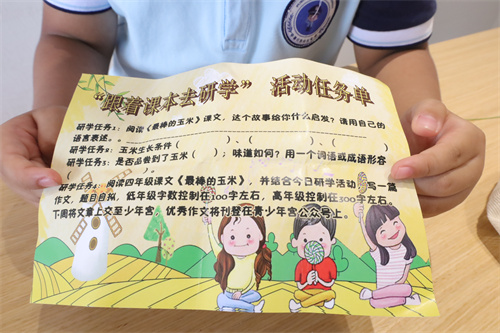 “跟着课本去研学” 活动任务单
研学任务1：阅读《最棒的玉米》课文，这个故事给你什么启发？请用自己的
语言表述。
研学任务2：玉米生长条件（ ）、（ ）、（ ）
研学任务3：是否品尝到了玉米（ ）；味道如何？用一个词语或成语形容
（ ）
研学任务4：阅读四年级课文《最棒的玉米》，并结合今日研学活动，写一篇
作文，题目自拟，低年级字数控制在100字左右，高年级控制在300字左右。
下周将文章上交至少年宫，优秀作文将刊登在青少年宫公众号上。